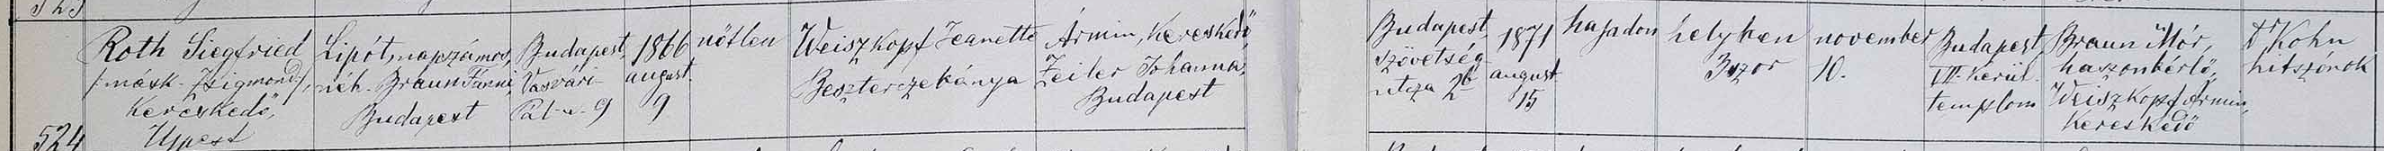 Roth Siegfried
/másk. Zsigmond/,
Kereskedő,
Ujpest
Lipót, napszámos,
néh. Braun Fánni,
Budapest
Budapest,
Vasvári
Pál-u. 9
1866
august.
9
nőtlen
Weiszkopf Jeanette
Beszterczebánya
Ármin, Kereskedő
Zeiler Johanna,
Budapest
Budapest,
Szövetség
utcza 26
1871
august
15
hajadon
helyben
3szor
november
10.
Budapest,
VII. Kerül.
templom
Braun Mór,
haszonbérlő,
Weiszkopf Ármin,
Kereskedő
Dr Kohn
hitszónok
524